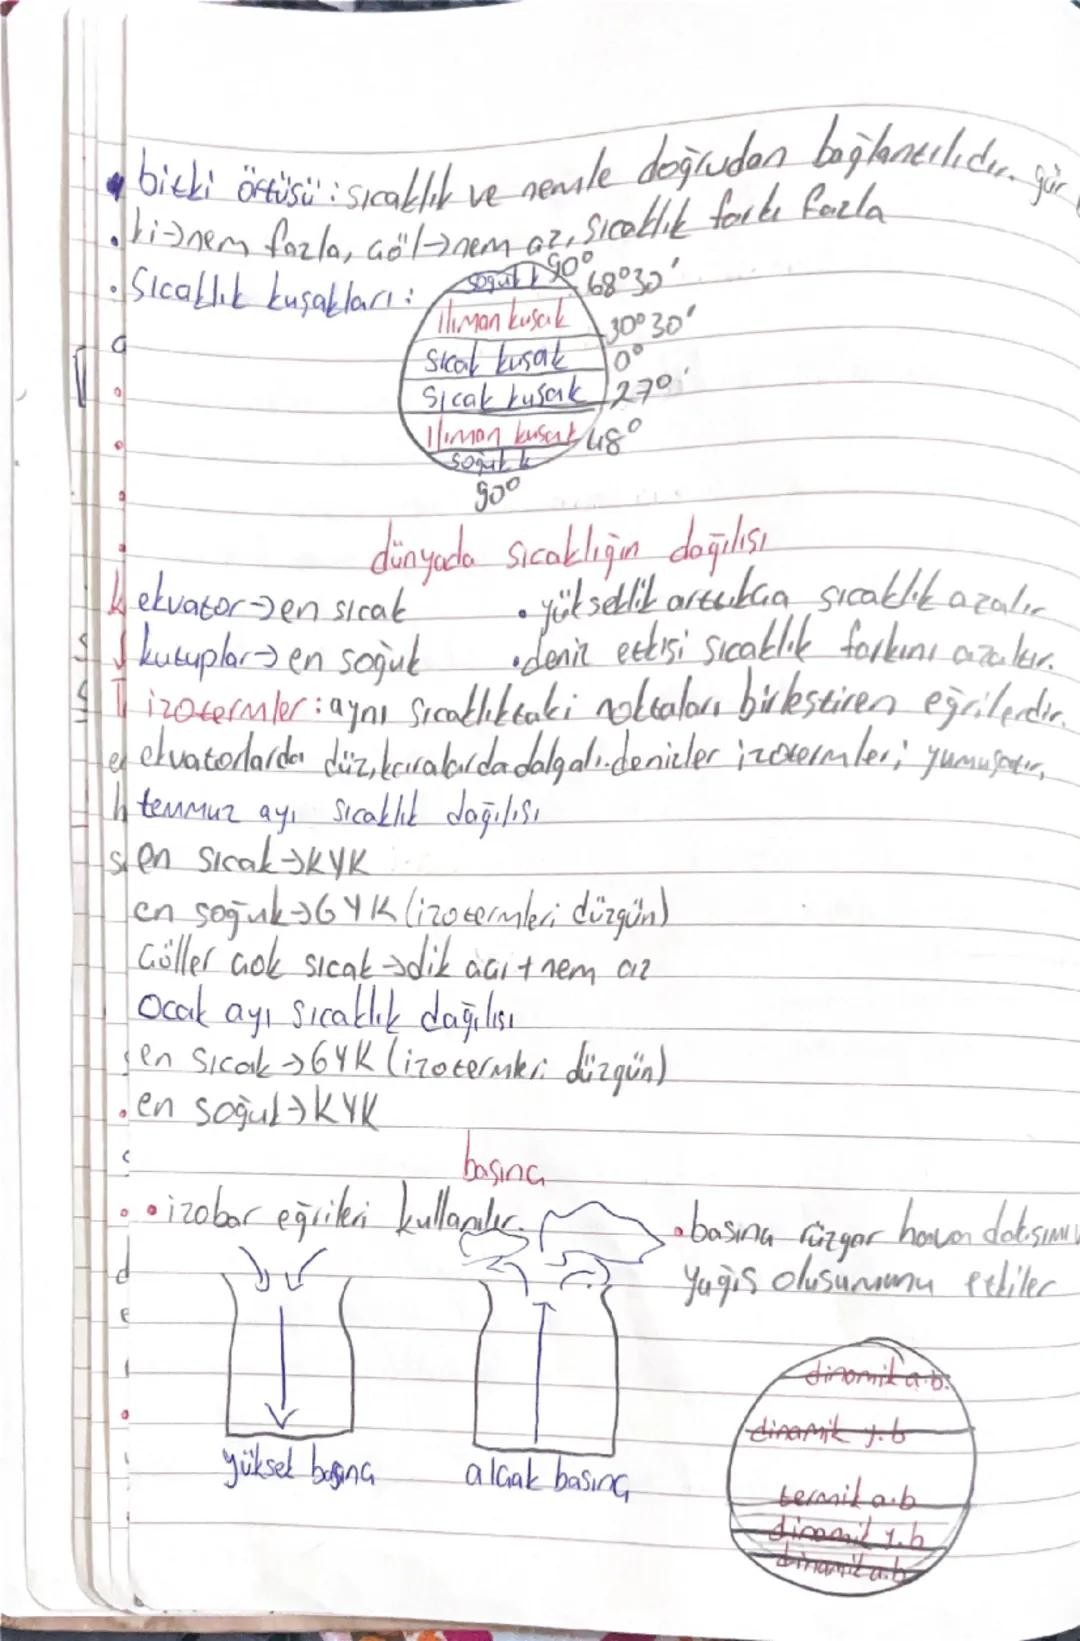 bitki örtüsü: sıcaklık ve nemle doğrudan bağlantılıdır. gür
→nem fazla, çöl→nem az, sıcaklık farkı fazla
Sıcaklık kuşakları:
90°
soğuk k
68°30'
ılıman kuşak
30°30'
Sıcak kuşak
0°
Sıcak kuşak
27°
ılıman kuşak
48°
soğuk k
90°
dünyada sıcaklığın dağılışı
ekvator→en sıcak
• yükseklik arttıkça sıcaklık azalır
kutuplar→en soğuk
• deniz etkisi sıcaklık farkını azaltır.
izotermler: aynı sıcaklıktaki noktaları birleştiren eğrilerdir.
ekvatorlarda düz, karalarda dalgalı. denizler izotermleri yumuşatır,
temmuz ayı sıcaklık dağılışı
en sıcak→KYK
en soğuk→GYK (izotermleri düzgün)
Çöller çok sıcak→dik açı+nem az
Ocak ayı sıcaklık dağılışı
en sıcak→GYK (izotermleri düzgün)
en soğuk→KYK
basınç
• izobar eğrileri kullanılır.
• basınç rüzgar hava
yağış oluşumunu etkiler
yüksek basınç
alçak basınç
dinamik a.b.
dinamik y.b
termik a.b
dinamik y.b
dinamik a.b